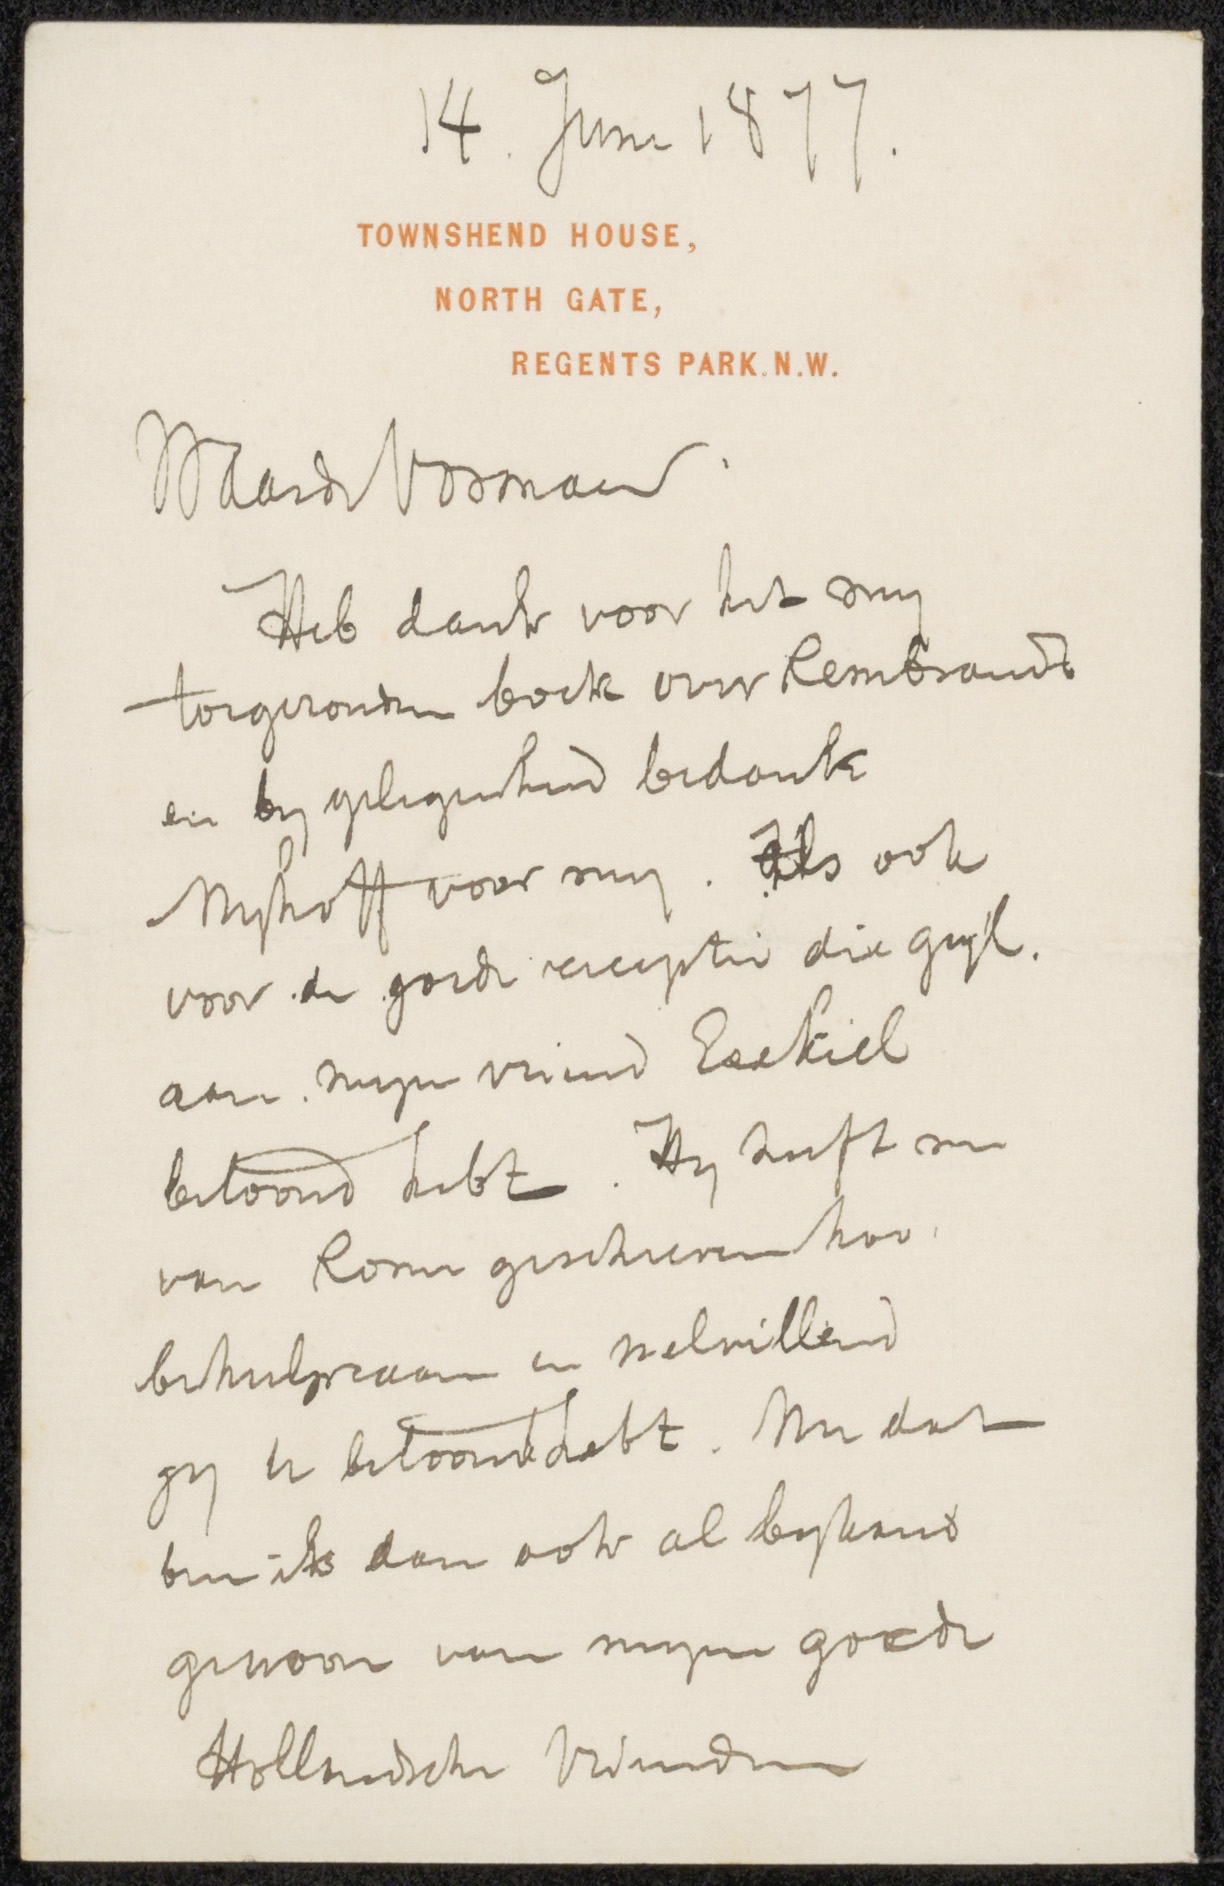 14. Juni 1877.
TOWNSHEND HOUSE,
NORTH GATE,
REGENTS PARK.N.W.
Waarde Vosmaer.
Heb dank voor het my
toegezonden boek over Rembrandt
en by gelegenheid bedank
Nyhoff voor my. Als ook
voor de goede receptie die gyl.
aan myn vriend Ezekiel
betoond hebt. Hy heeft me
van Rome geschreven hoe
behulpzaam en welwillend
gy U betoond hebt. Nu dat
ben ik dan ook al bykans
gewoon van myne goede
Hollandsche Vrienden